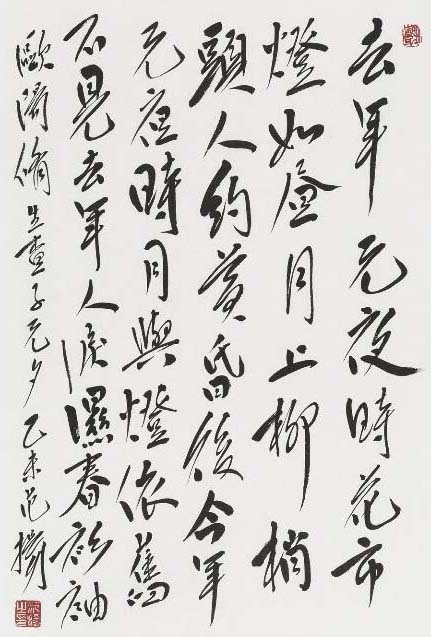 去年元夜時花市
燈如晝月上柳梢
頭人約黃昏後今年
元夜時月與燈依舊
不見去年人淚濕春衫袖
歐陽脩生查子元夕乙未范